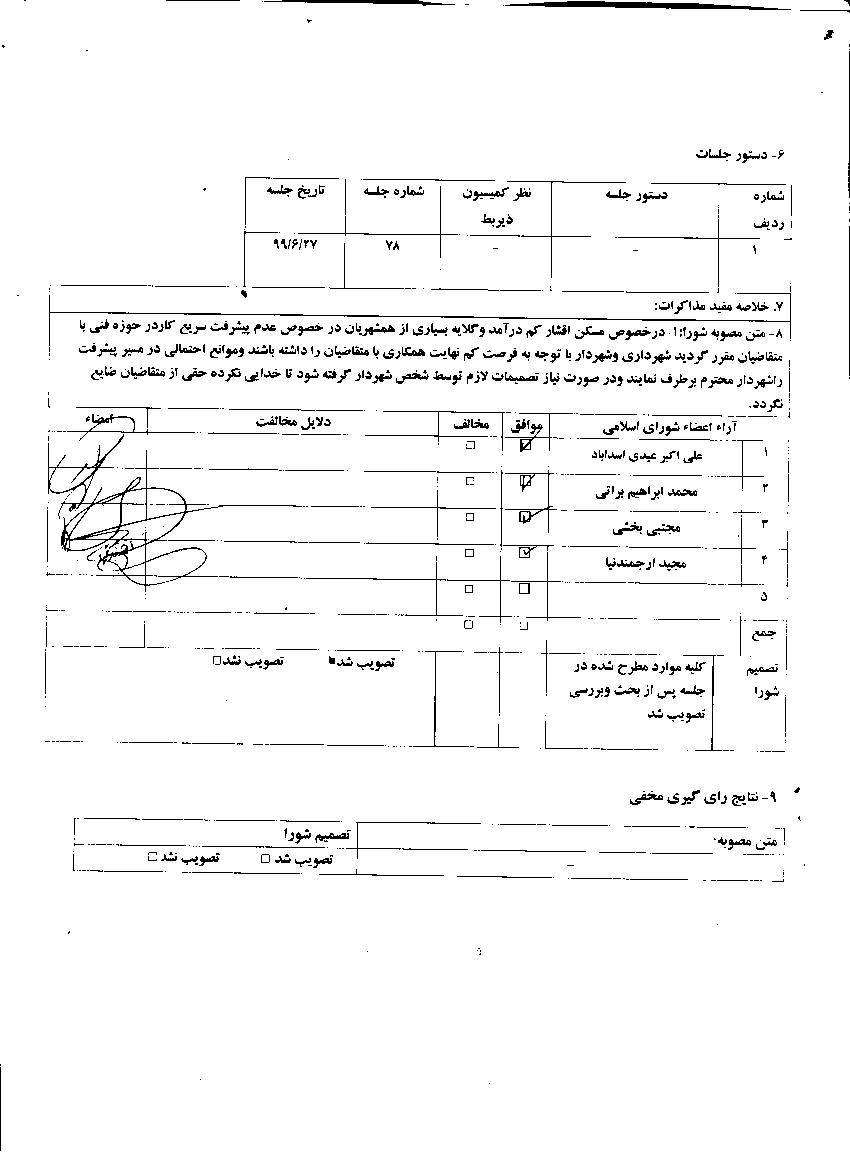 ۶- دستور جلسات
شماره ردیف دستور جلسه نظر کمیسیون ذیربط شماره جلسه تاریخ جلسه
۱ - - ۷۸ ۹۹/۶/۲۷
۷. خلاصه مفید مذاکرات:
۸- متن مصوبه شورا:۱- درخصوص مسکن اقشار کم درآمد وگلایه بسیاری از همشهریان در خصوص عدم پیشرفت سریع کاردر حوزه فنی با
متقاضیان مقرر گردید شهرداری وشهردار با توجه به فرصت کم نهایت همکاری با متقاضیان را داشته باشند وموانع احتمالی در مسیر پیشرفت
راشهردار محترم برطرف نمایند ودر صورت نیاز تصمیمات لازم توسط شخص شهردار گرفته شود تا خدایی نکرده حقی از متقاضیان ضایع
نگردد.
آراء اعضاء شورای اسلامی موافق مخالف دلایل مخالفت امضاء
۱ علی اکبر عیدی اسدآباد
۲ محمد ابراهیم براتی
۳ مجتبی بخشی
۴ مجید ارجمندنیا
۵
جمع
تصمیم شورا کلیه موارد مطرح شده در تصویب شد تصویب نشد
جلسه پس از بحث وبررسی
تصویب شد
۹- نتایج رای گیری مخفی
متن مصوبه: تصمیم شورا
- تصویب شد تصویب نشد